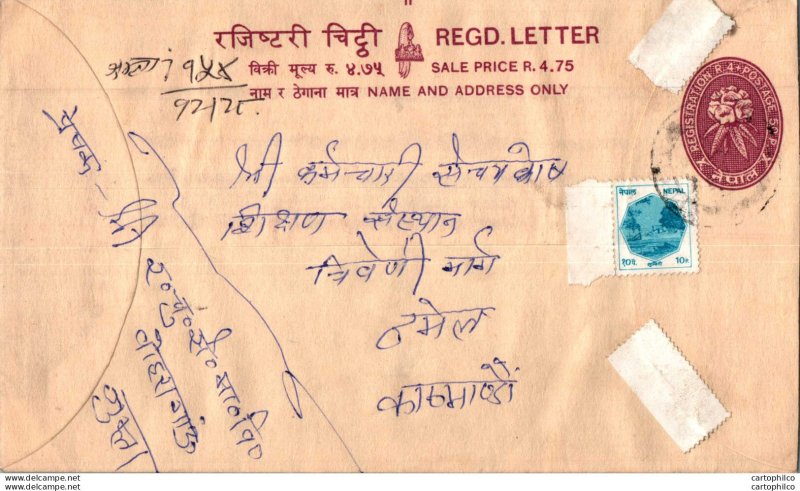 रजिष्टरी चिट्ठी REGD. LETTER
बिक्री मूल्य रु. ४.७५ SALE PRICE R. 4.75
नाम र ठेगाना मात्र NAME AND ADDRESS ONLY
१५४
REGISTRATION R.4+POSTAGE 5 P.
नेपाल
श्री कर्मचारी सञ्चयकोष
शिक्षण संस्थान
त्रिवेणी मार्ग
ठमेल
काठमाण्डौं
नेपाल NEPAL
१०पै. लुम्बिनी 10P.
प्रेषक - श्री
www.delcampe.net
cartophilco
www.delcampe.net
cartophilco